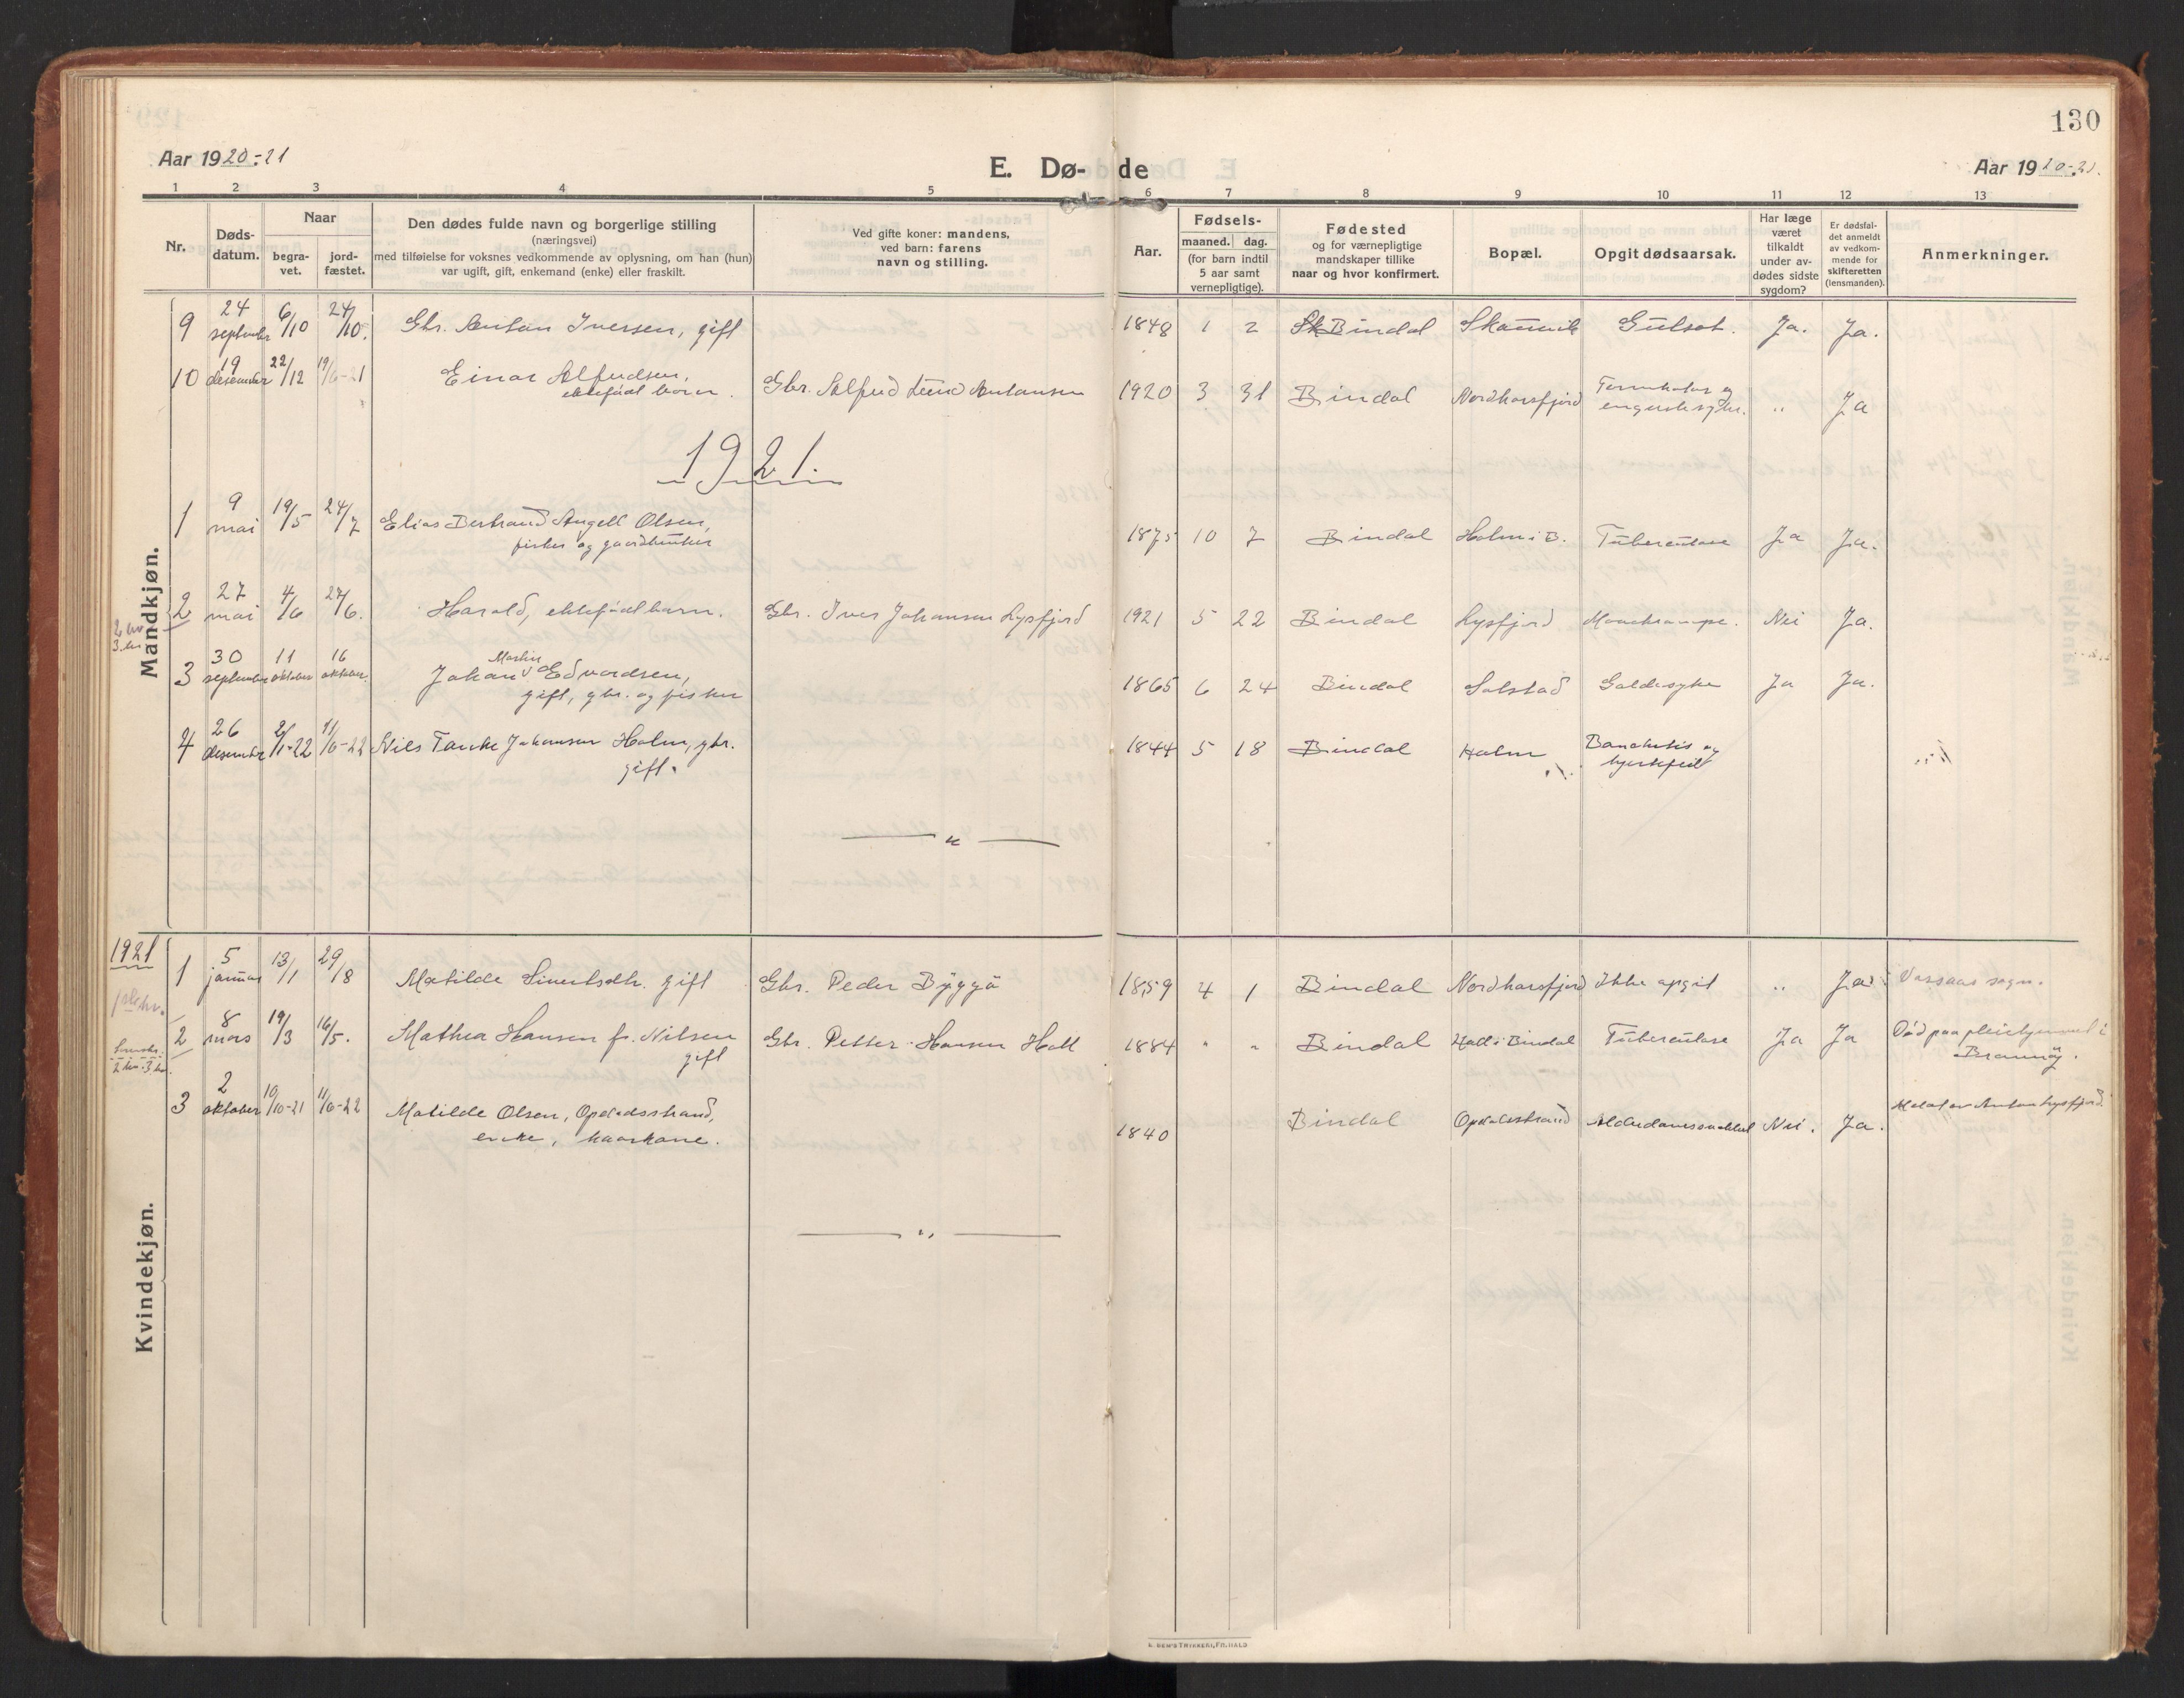 130
Aar 1920-21
E. Dø-de
Aar 1920-21.
1 2 3 4 5 6 7 8 9 10 11 12 13
Nr.
Døds-
datum.
Naar
begra-
vet.
jord-
fæstet.
Den dødes fulde navn og borgerlige stilling
(næringsvei)
med tilføielse for voksnes vedkommende av oplysning, om han (hun)
var ugift, gift, enkemand (enke) eller fraskilt.
Ved gifte koner: mandens,
ved barn: farens
navn og stilling.
Aar.
Fødsels-
maaned. dag.
(for barn indtil
5 aar samt
vernepligtige).
Fødested
og for værnepligtige
mandskaper tillike
naar og hvor konfirmert.
Bopæl.
Opgit dødsaarsak.
Har læge
været
tilkaldt
under av-
dødes sidste
sygdom?
Er dødsfal-
det anmeldt
av vedkom-
mende for
skifteretten
(lensmanden).
Anmerkninger.
Mandkjøn.
9 24 september 6/10 24/10. Gbr. Anton Iversen, gift 1848 1 2 Bindal Skauvik Gulsot. Ja. Ja.
10 19 desember 22/12 19/6-21 Einar Alfredsen, Gbr. Alfred Antonsen 1920 3 31 Bindal Nordhorsfjord " Ja
ektefødt barn.
1921.
1 9 mai 19/5 24/7 Elias Bertrand Angell Olsen, 1875 10 7 Bindal Holm i B. Tuberculose Ja Ja.
fisker og gaardbruker
2 27 mai 4/6 24/6. Harald, ektefødt barn. Gbr. Iver Johansen Lysfjord 1921 5 22 Bindal Lysfjord Nei Ja.
3 30 september 11 oktober 16 oktober. Johan Martin Edvardsen, 1865 6 24 Bindal Solstad Galdesyke Ja Ja.
gift, gbr. og fisker
4 26 desember 2/1-22 11/6-22 Nils Tanke Johansen Holm, gbr. 1844 5 18 Bindal Holm Bronchitis og
gift. hjertefeil
— " —
Kvindekjøn.
1921
1 5 januar 13/1 29/8 Matilde Sivertsdtr. gift Gbr. Peder Bøygyå 1859 4 1 Bindal Nordhorsfjord Ikke opgit " Ja Vassaas sogn.
2 8 mars 19/3 16/5. Mathea Hansen f. Nilsen Gbr. Petter Hansen Holt 1884 " " Bindal Holt i Bindal Tuberculose Ja Ja Død paa pleiehjemmet i
gift Brønnøy.
3 2 oktober 10/10-21 11/6-22 Matilde Olsen, Opdalsstrand, 1840 Bindal Opdalsstrand Alderdomssvakhet Nei. Ja. Meldt av Anton Lysfjord.
enke, kaarkone.
— " —